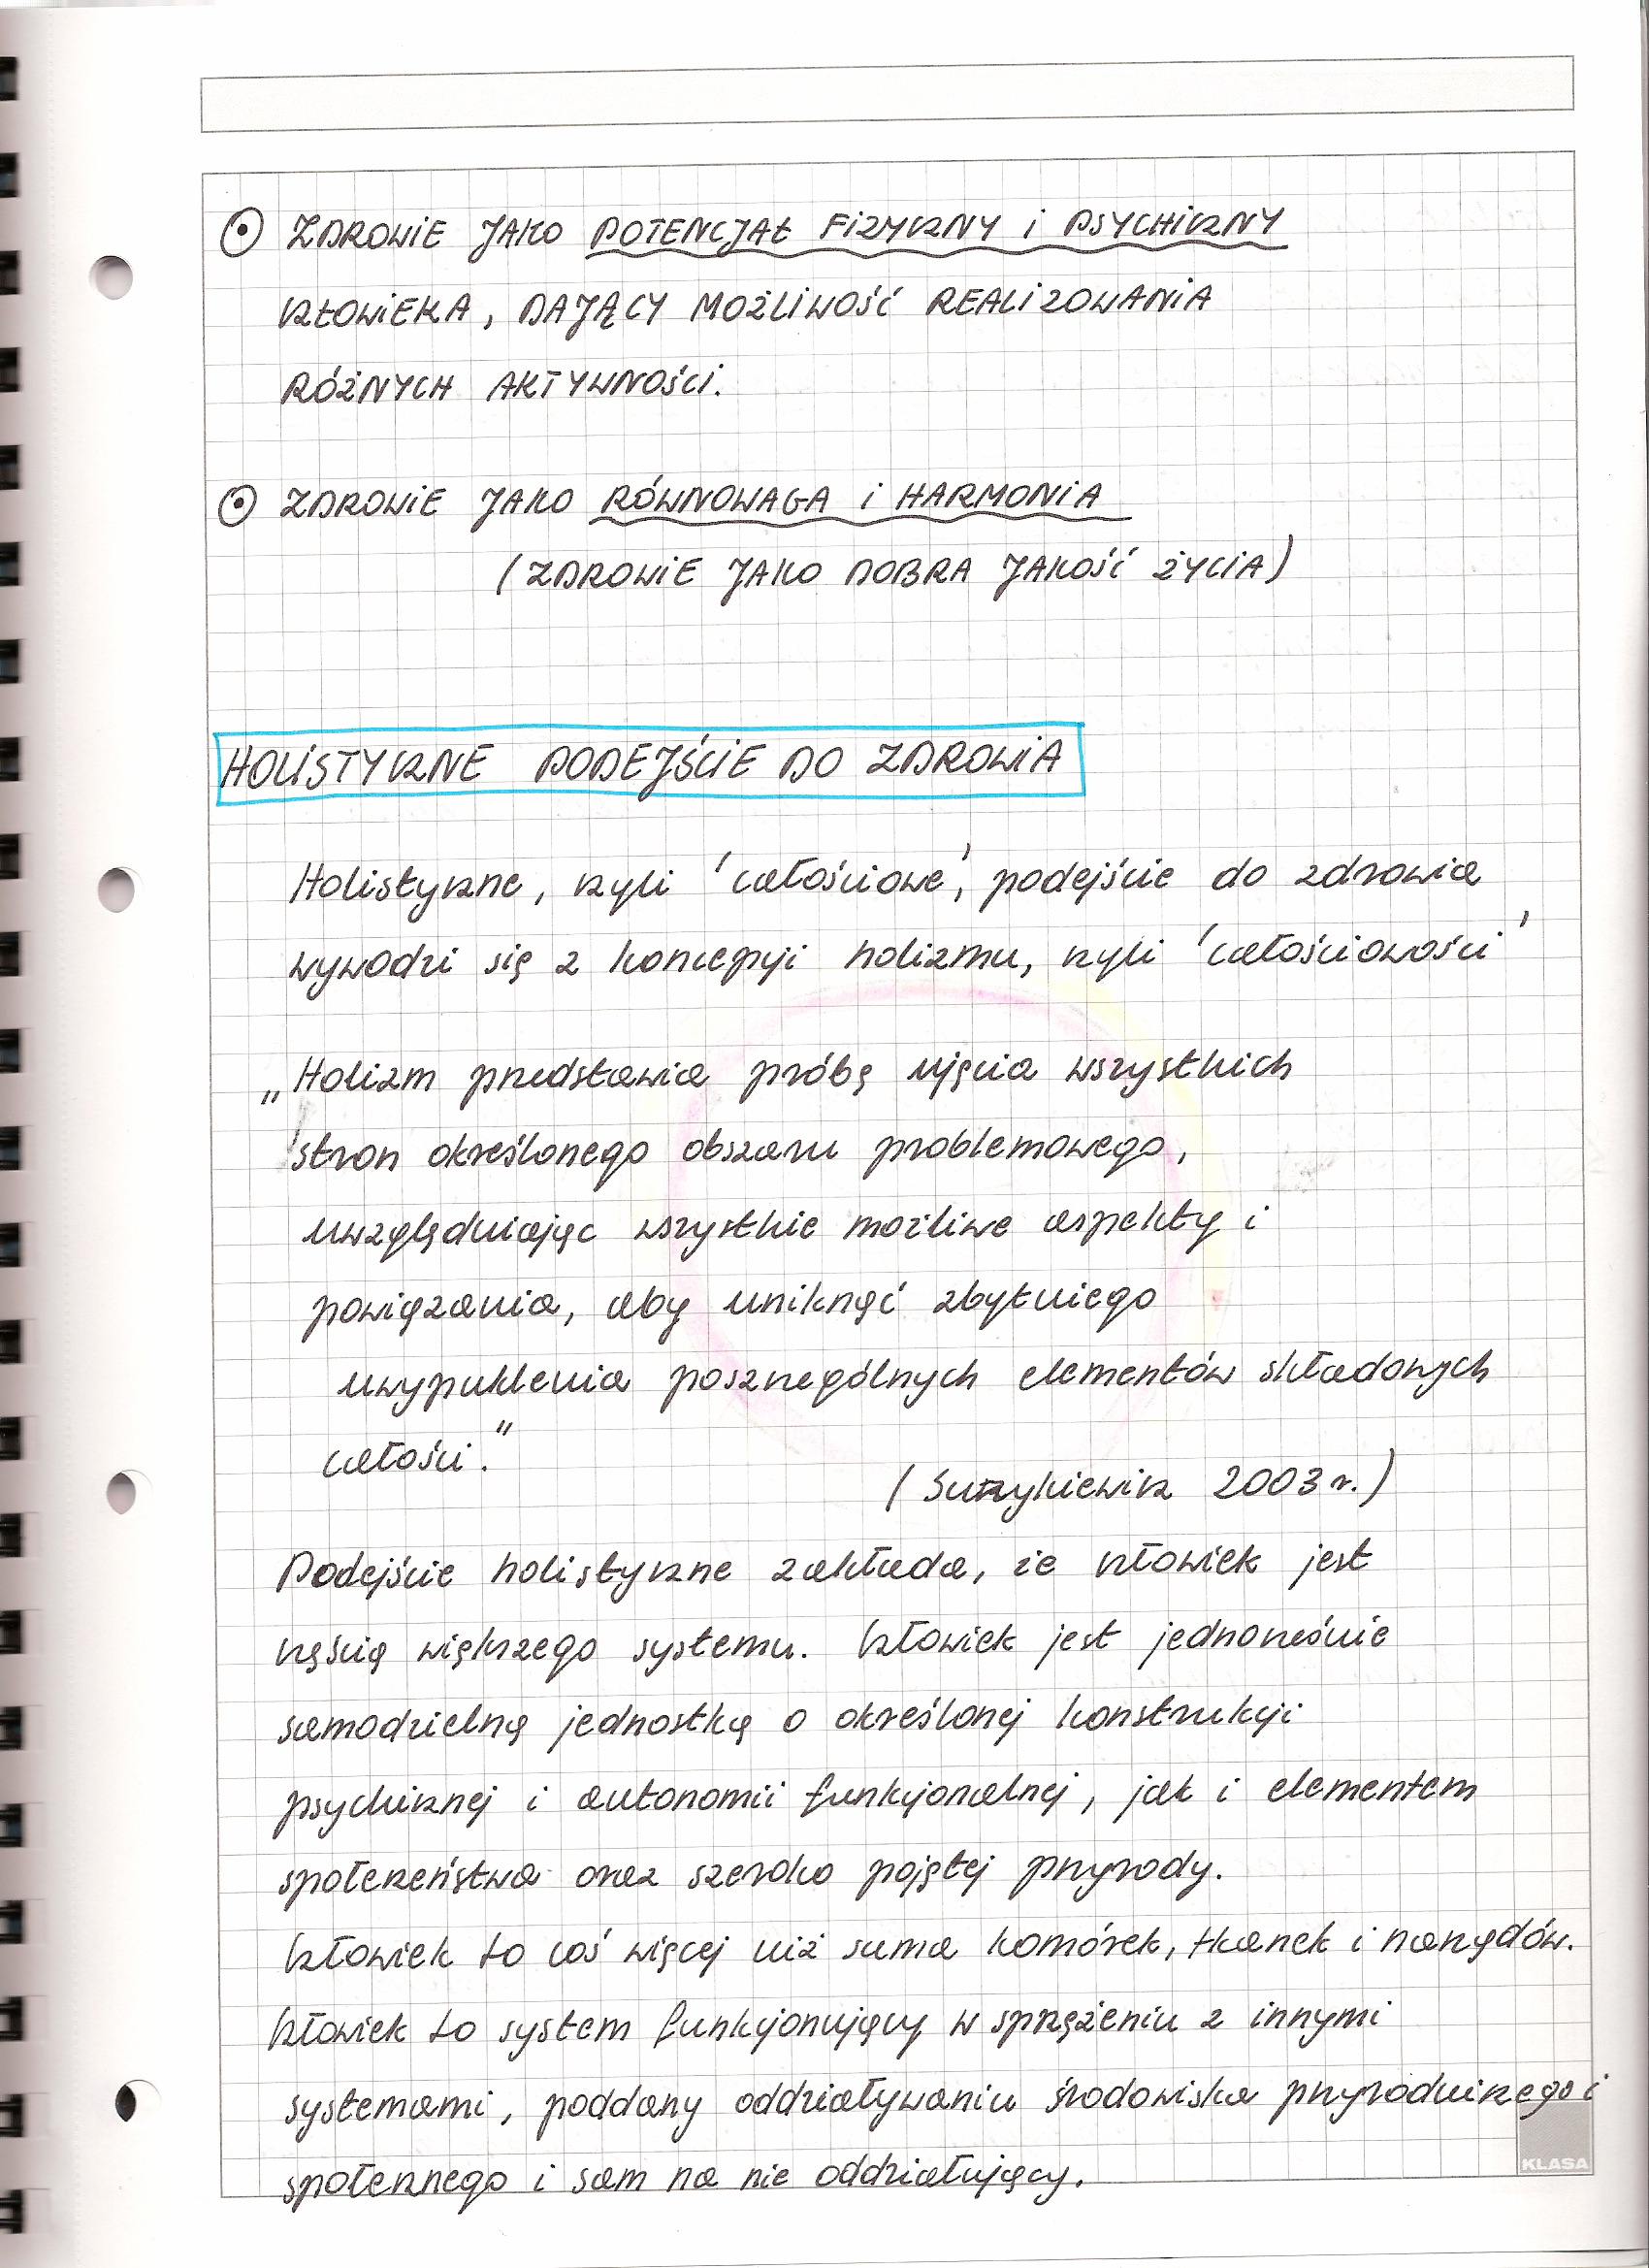 ⊙ ZDROWIE JAKO POTENCJAŁ FIZYCZNY i PSYCHICZNY
CZŁOWIEKA, DAJĄCY MOŻLIWOŚĆ REALIZOWANIA
RÓŻNYCH AKTYWNOŚCI.
⊙ ZDROWIE JAKO RÓWNOWAGA i HARMONIA
(ZDROWIE JAKO DOBRA JAKOŚĆ ŻYCIA)
HOLISTYCZNE PODEJŚCIE DO ZDROWIA
Holistyczne, czyli 'całościowe', podejście do zdrowia
wywodzi się z koncepcji holizmu, czyli 'całościowości'
„Holizm przedstawia próbę ujęcia wszystkich
stron określonego obszaru problemowego,
uwzględniając wszystkie możliwe aspekty i
powiązania, aby uniknąć zbytniego
uwypuklenia poszczególnych elementów składowych
całości."
(Surzykiewicz 2003 r.)
Podejście holistyczne zakłada, że człowiek jest
częścią większego systemu. Człowiek jest jednocześnie
samodzielną jednostką o określonej konstrukcji
psychicznej i autonomii funkcjonalnej, jak i elementem
społeczeństwa oraz szeroko pojętej przyrody.
Człowiek to coś więcej niż suma komórek, tkanek i narządów.
Człowiek to system funkcjonujący w sprzężeniu z innymi
systemami, poddany oddziaływaniu środowiska przyrodniczego i
społecznego i sam na nie oddziałujący.
KLASA